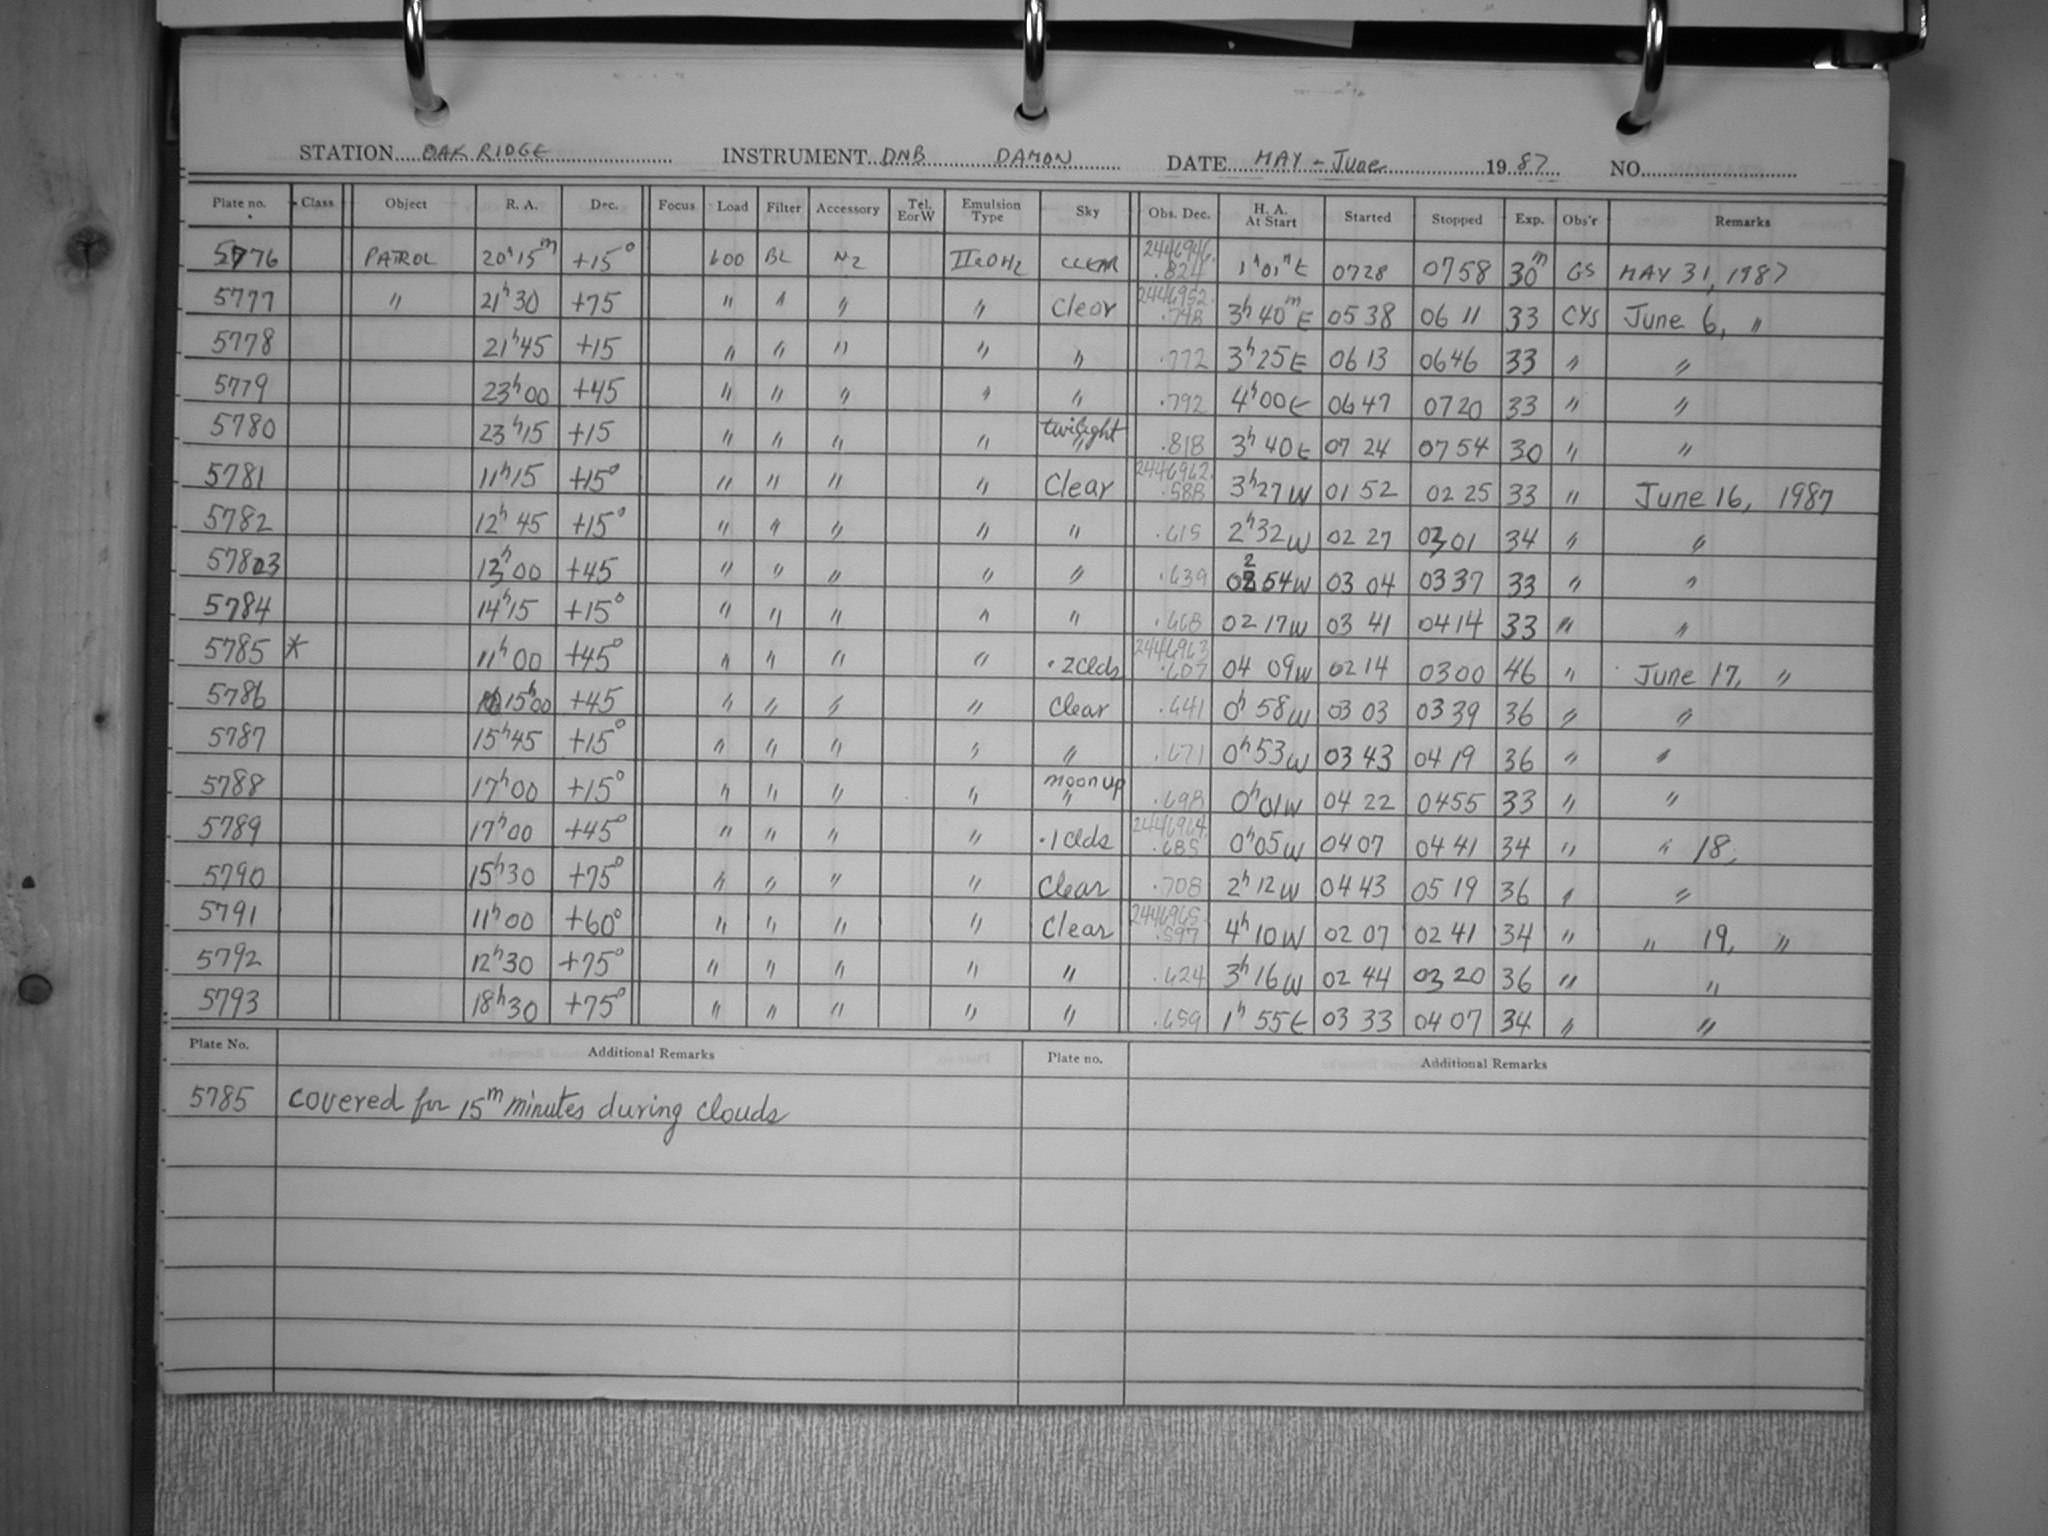 STATION OAK RIDGE INSTRUMENT DNB DAMON DATE MAY - June 19 87 NO.
Plate no. Class Object R. A. Dec. Focus Load Filter Accessory Tel. E or W Emulsion Type Sky Obs. Dec. H. A. At Start Started Stopped Exp. Obs'r Remarks
5776 PATROL 20h 15m +15° LOO BL N2 IIaOH2 CLEAR 2446946. .824 1h 01m E 0728 0758 30m GS MAY 31, 1987
5777 " 21h 30 +75 " " " " Clear 2446952. .748 3h 40m E 05 38 06 11 33 CYS June 6, "
5778 21h 45 +15 " " " " " .772 3h 25 E 06 13 06 46 33 " "
5779 23h 00 +45 " " " " " .792 4h 00 E 06 47 07 20 33 " "
5780 23h 15 +15 " " " " twilight " .818 3h 40 E 07 24 07 54 30 " "
5781 11h 15 +15° " " " " Clear 2446962. .588 3h 27 W 01 52 02 25 33 " June 16, 1987
5782 12h 45 +15° " " " " " .615 2h 32 W 02 27 03 01 34 " "
5783 13h 00 +45 " " " " " .639 02 54 W 03 04 03 37 33 " "
5784 14h 15 +15° " " " " " .668 02 17 W 03 41 04 14 33 " "
5785 * 11h 00 +45° " " " " .2 clds 2446963 .607 04 09 W 02 14 03 00 46 " June 17, "
5786 15h 00 +45 " " " " Clear .641 0h 58 W 03 03 03 39 36 " "
5787 15h 45 +15° " " " " " .671 0h 53 W 03 43 04 19 36 " "
5788 17h 00 +15° " " " " moon up " .698 0h 01 W 04 22 04 55 33 " "
5789 17h 00 +45° " " " " .1 clds 2446964. .685 0h 05 W 04 07 04 41 34 " " 18,
5790 15h 30 +75° " " " " Clear .708 2h 12 W 04 43 05 19 36 " "
5791 11h 00 +60° " " " " Clear 2446965. .597 4h 10 W 02 07 02 41 34 " " 19, "
5792 12h 30 +75° " " " " " .624 3h 16 W 02 44 03 20 36 " "
5793 18h 30 +75° " " " " " .659 1h 55 E 03 33 04 07 34 " "
Plate No. Additional Remarks Plate no. Additional Remarks
5785 covered for 15m minutes during clouds